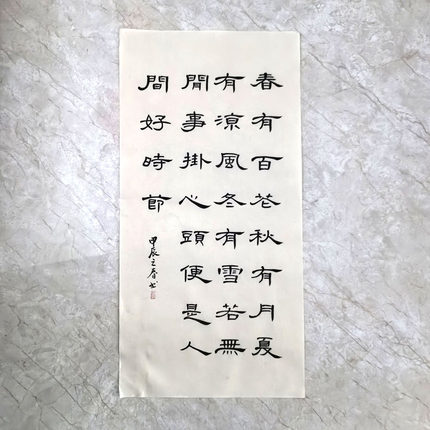 春有百花秋有月夏
有涼風冬有雪若無
閒事掛心頭便是人
間好時節
甲辰立春书